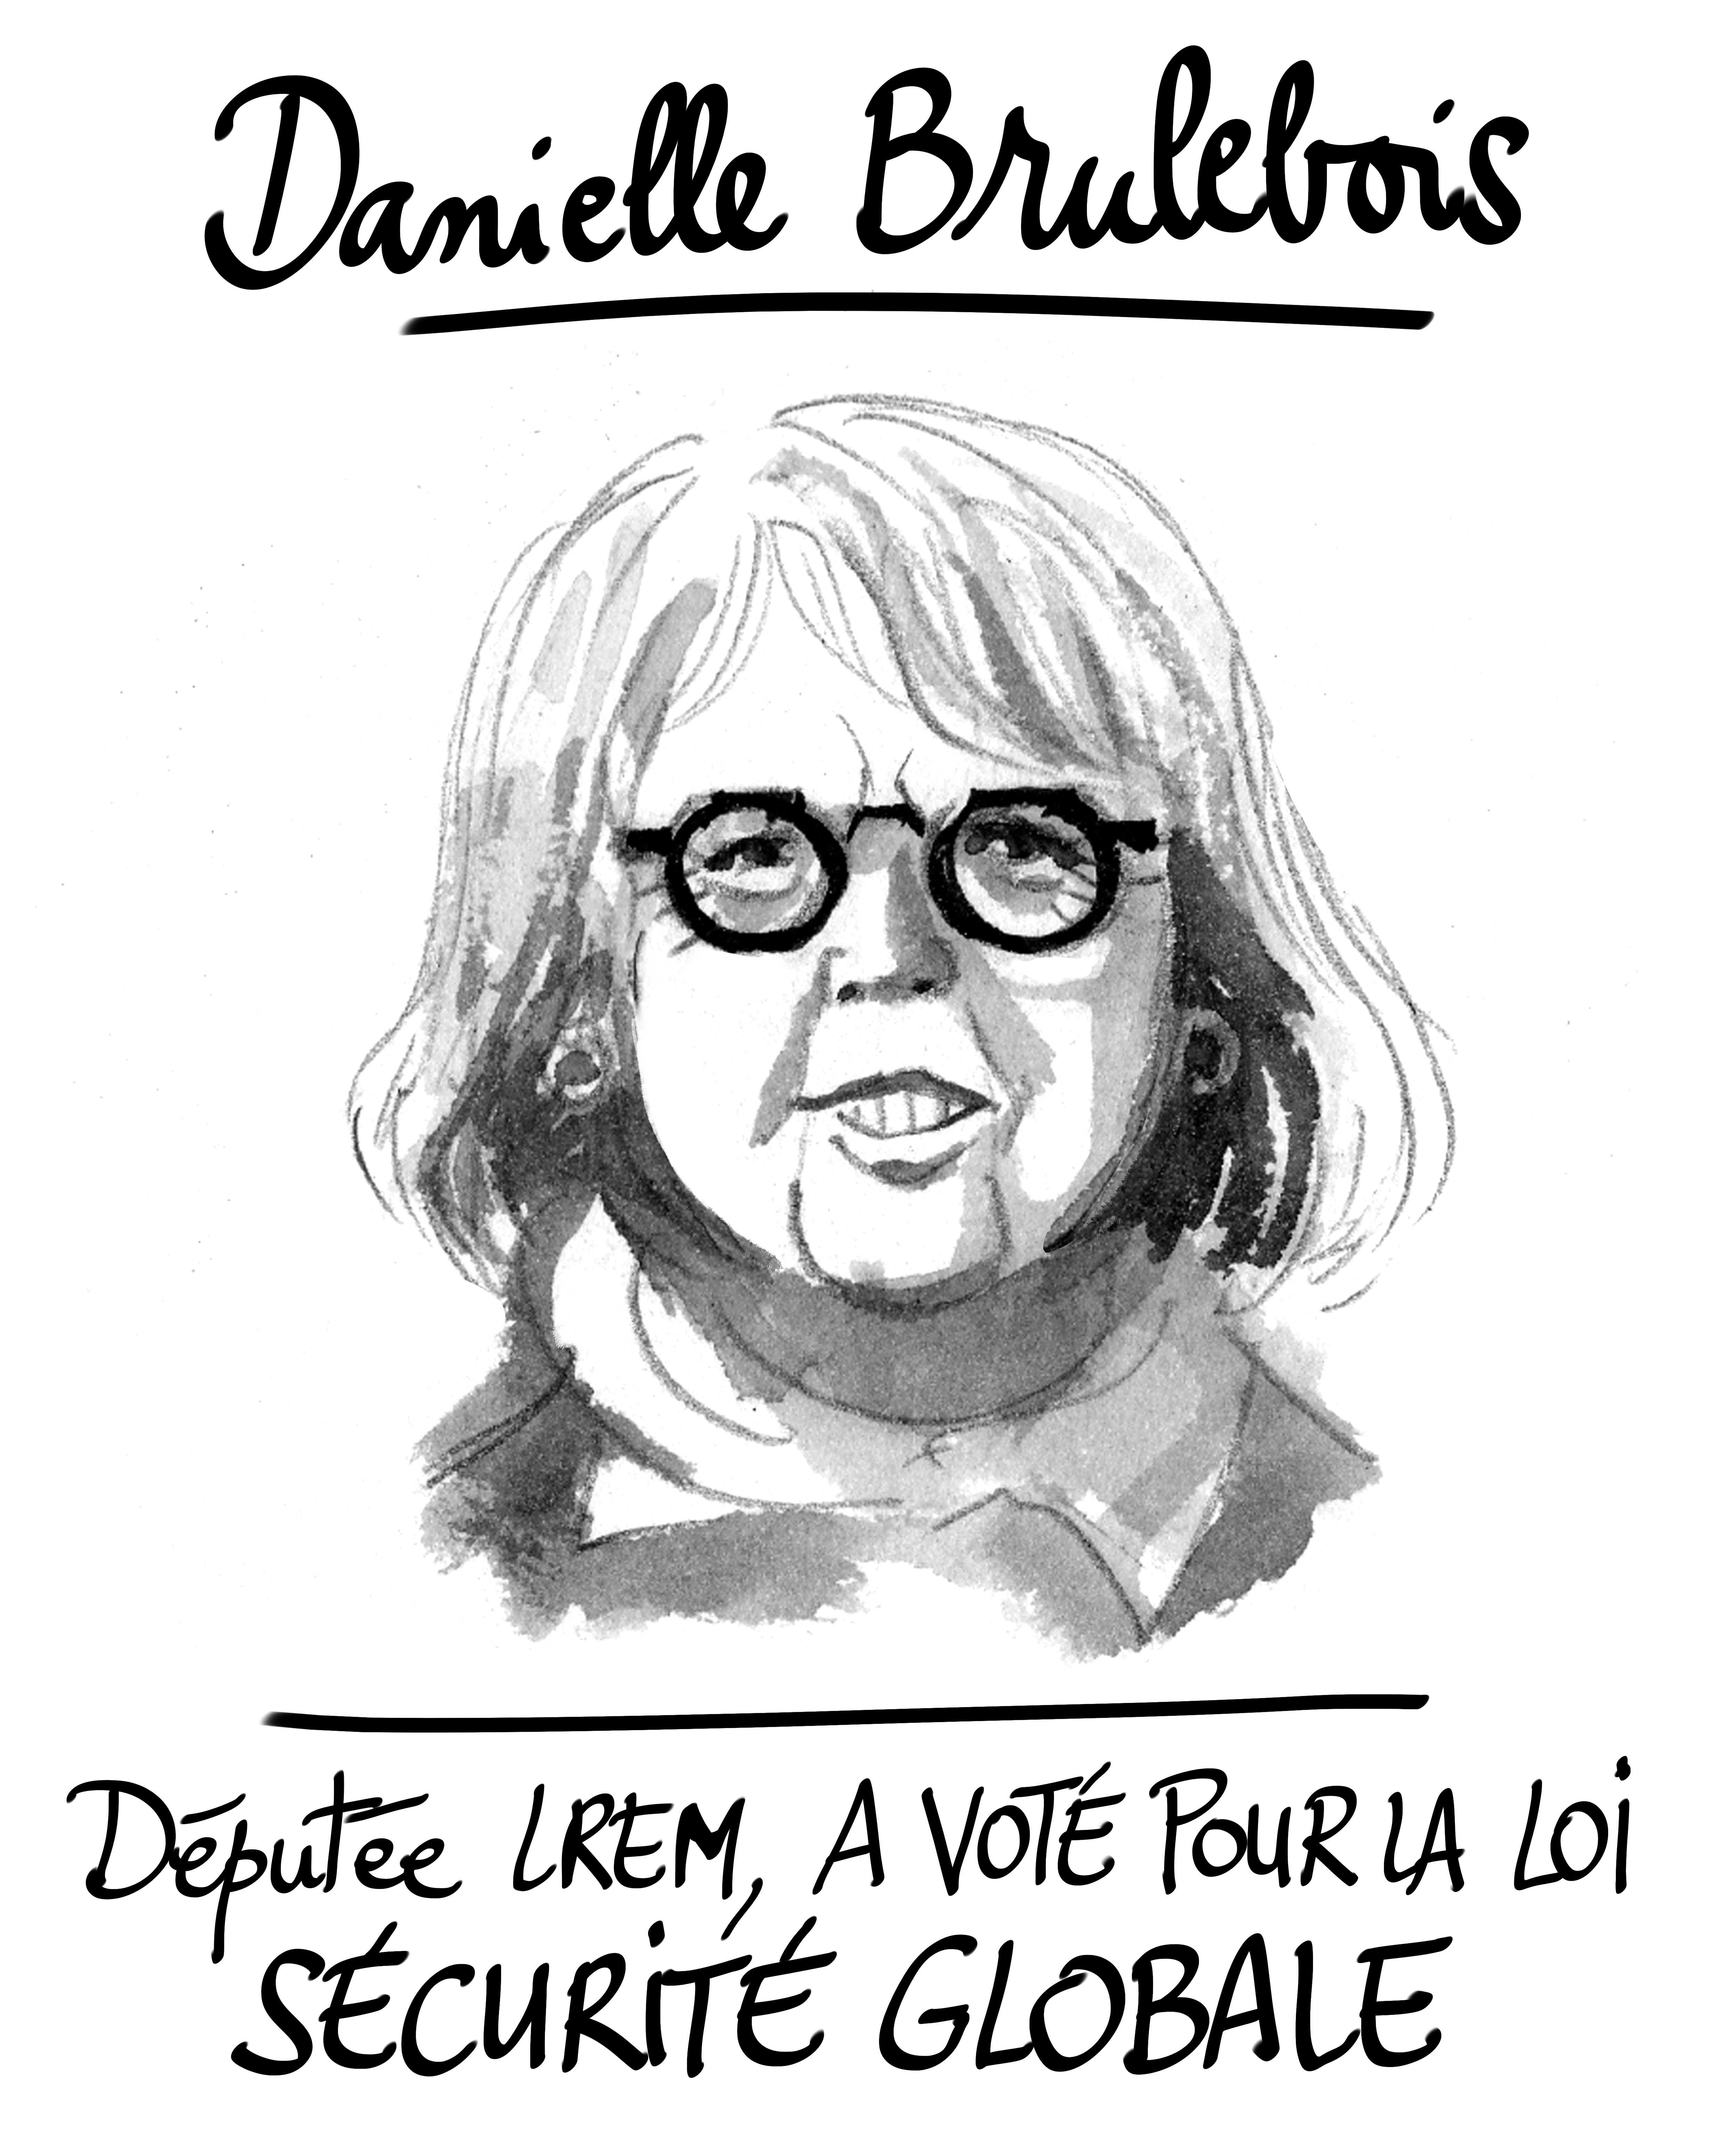 Danielle Brulebois
Députée LREM, A VOTÉ POUR LA LOI
SÉCURITÉ GLOBALE